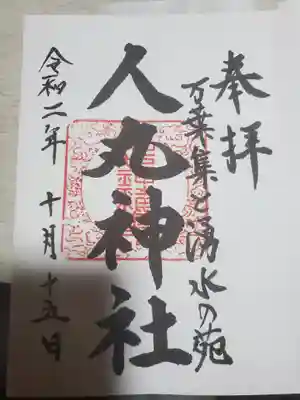 奉拝
万葉集と湧水の苑
人丸神社
令和二年十月十五日